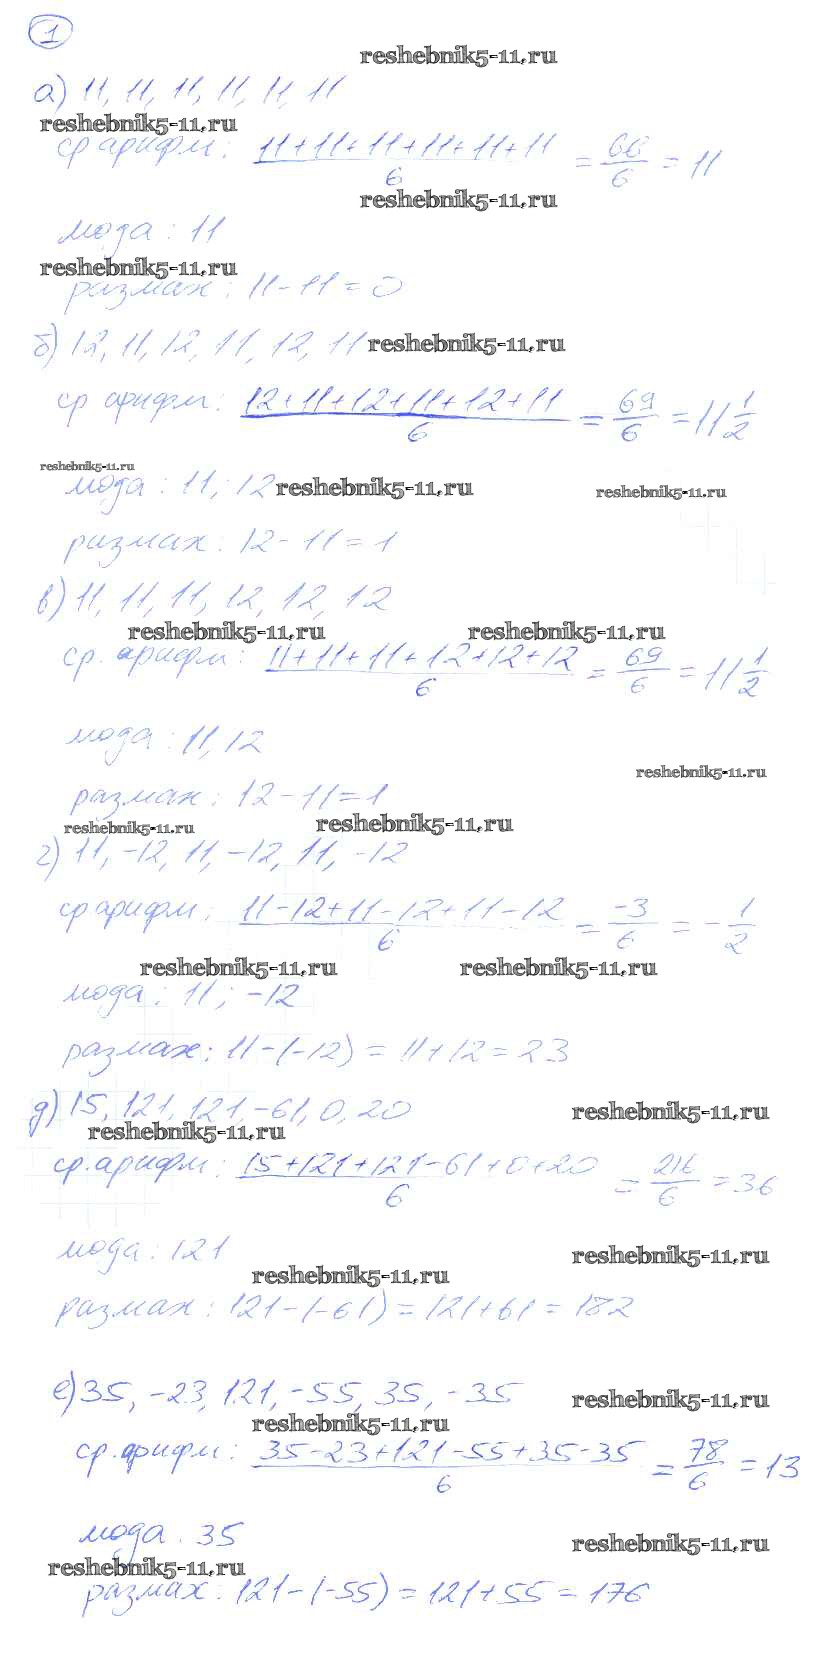 1
reshebnik5-11.ru
а) 11, 11, 11, 11, 11, 11
reshebnik5-11.ru
ср арифм: (11+11+11+11+11+11)/6 = 66/6 = 11
reshebnik5-11.ru
мода: 11
reshebnik5-11.ru
размах: 11-11=0
б) 12, 11, 12, 11, 12, 11 reshebnik5-11.ru
ср арифм: (12+11+12+11+12+11)/6 = 69/6 = 11 1/2
reshebnik5-11.ru
мода: 11; 12 reshebnik5-11.ru reshebnik5-11.ru
размах: 12-11=1
в) 11, 11, 11, 12, 12, 12
reshebnik5-11.ru reshebnik5-11.ru
ср. арифм: (11+11+11+12+12+12)/6 = 69/6 = 11 1/2
мода: 11, 12
reshebnik5-11.ru
размах: 12-11=1
reshebnik5-11.ru reshebnik5-11.ru
г) 11, -12, 11, -12, 11, -12
ср арифм: (11-12+11-12+11-12)/6 = -3/6 = -1/2
reshebnik5-11.ru reshebnik5-11.ru
мода: 11; -12
размах: 11-(-12) = 11+12=23
д) 15, 121, 121, -61, 0, 20 reshebnik5-11.ru
reshebnik5-11.ru
ср. арифм: (15+121+121-61+0+20)/6 = 216/6 = 36
мода: 121 reshebnik5-11.ru
reshebnik5-11.ru
размах: 121-(-61) = 121+61 = 182
е) 35, -23, 121, -55, 35, -35 reshebnik5-11.ru
reshebnik5-11.ru
ср. арифм: (35-23+121-55+35-35)/6 = 78/6 = 13
мода. 35 reshebnik5-11.ru
reshebnik5-11.ru
размах: 121-(-55) = 121+55 = 176